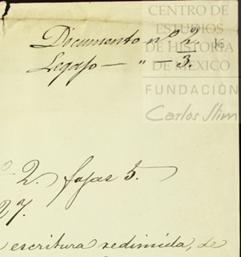 CENTRO DE
ESTUDIOS
DE HISTORIA
DE MÉXICO
FUNDACIÓN
Carlos Slim
Documento nº 2.
Legajo — " — 3.
2. fojas 5.
27.
escritura redimida, de